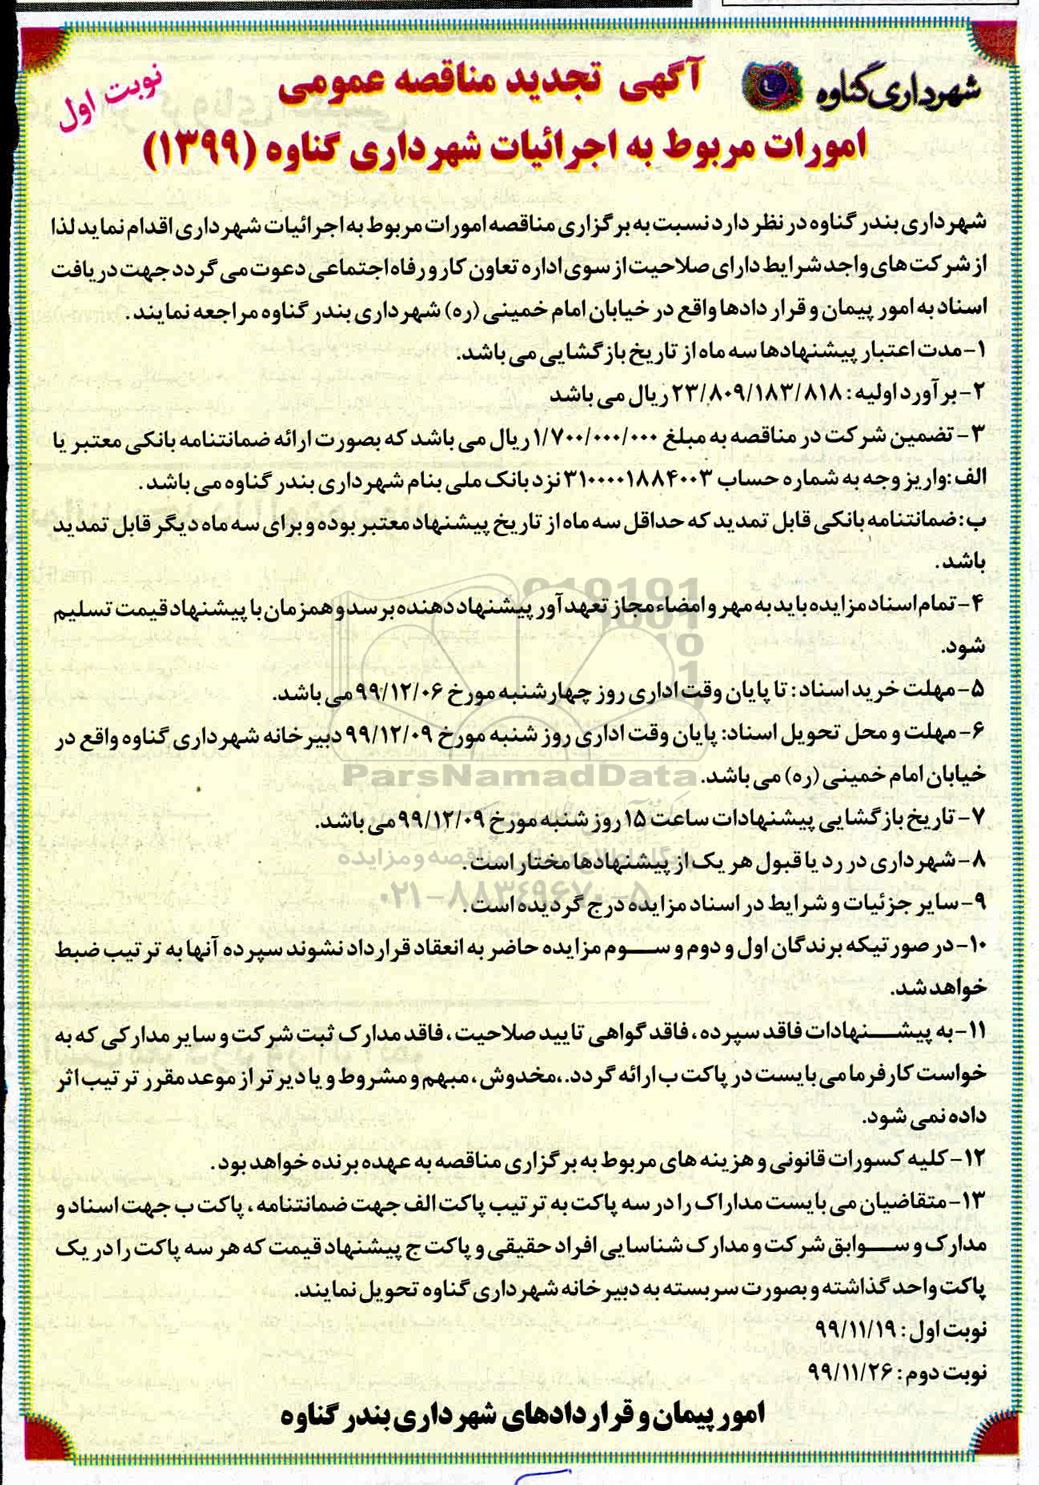 شهرداری گناوه
آگهی تجدید مناقصه عمومی
نوبت اول
امورات مربوط به اجرائیات شهرداری گناوه (۱۳۹۹)
شهرداری بندر گناوه در نظر دارد نسبت به برگزاری مناقصه امورات مربوط به اجرائیات شهرداری اقدام نماید لذا
از شرکت های واجد شرایط دارای صلاحیت از سوی اداره تعاون کار و رفاه اجتماعی دعوت می گردد جهت دریافت
اسناد به امور پیمان و قرار دادها واقع در خیابان امام خمینی (ره) شهرداری بندر گناوه مراجعه نمایند.
۱-مدت اعتبار پیشنهادها سه ماه از تاریخ بازگشایی می باشد.
۲-برآورد اولیه: ۲۳/۸۰۹/۱۸۳/۸۱۸ ریال می باشد
۳- تضمین شرکت در مناقصه به مبلغ ۱/۷۰۰/۰۰۰/۰۰۰ ریال می باشد که بصورت ارائه ضمانتنامه بانکی معتبر یا
الف:واریز وجه به شماره حساب ۳۱۰۰۰۰۱۸۸۴۰۰۳ نزد بانک ملی بنام شهرداری بندر گناوه می باشد.
ب:ضمانتنامه بانکی قابل تمدید که حداقل سه ماه از تاریخ پیشنهاد معتبر بوده و برای سه ماه دیگر قابل تمدید
باشد.
۴-تمام اسناد مزایده باید به مهر و امضاء مجاز تعهد آور پیشنهاد دهنده برسد و همزمان با پیشنهاد قیمت تسلیم
شود.
۵-مهلت خرید اسناد: تا پایان وقت اداری روز چهارشنبه مورخ ۹۹/۱۲/۰۶ می باشد.
۶-مهلت و محل تحویل اسناد: پایان وقت اداری روز شنبه مورخ ۹۹/۱۲/۰۹ دبیرخانه شهرداری گناوه واقع در
خیابان امام خمینی (ره) می باشد.
ParsNamadData
۷-تاریخ بازگشایی پیشنهادات ساعت ۱۵ روز شنبه مورخ ۹۹/۱۲/۰۹ می باشد.
۸-شهرداری در رد یا قبول هر یک از پیشنهادها مختار است.
۰۲۱-۸۸۳۴۹۶۷۰-۵
۹-سایر جزئیات و شرایط در اسناد مزایده درج گردیده است.
۱۰-در صورتیکه برندگان اول و دوم و سوم مزایده حاضر به انعقاد قرارداد نشوند سپرده آنها به ترتیب ضبط
خواهد شد.
۱۱-به پیشنهادات فاقد سپرده، فاقد گواهی تایید صلاحیت، فاقد مدارک ثبت شرکت و سایر مدارکی که به
خواست کارفرما می بایست در پاکت ب ارائه گردد.،مخدوش، مبهم و مشروط و یا دیرتر از موعد مقرر ترتیب اثر
داده نمی شود.
۱۲-کلیه کسورات قانونی و هزینه های مربوط به برگزاری مناقصه به عهده برنده خواهد بود.
۱۳-متقاضیان می بایست مداراک را در سه پاکت به ترتیب پاکت الف جهت ضمانتنامه، پاکت ب جهت اسناد و
مدارک و سوابق شرکت و مدارک شناسایی افراد حقیقی و پاکت ج پیشنهاد قیمت که هر سه پاکت را در یک
پاکت واحد گذاشته و بصورت سربسته به دبیرخانه شهرداری گناوه تحویل نمایند.
نوبت اول: ۹۹/۱۱/۱۹
نوبت دوم: ۹۹/۱۱/۲۶
امور پیمان و قراردادهای شهرداری بندر گناوه